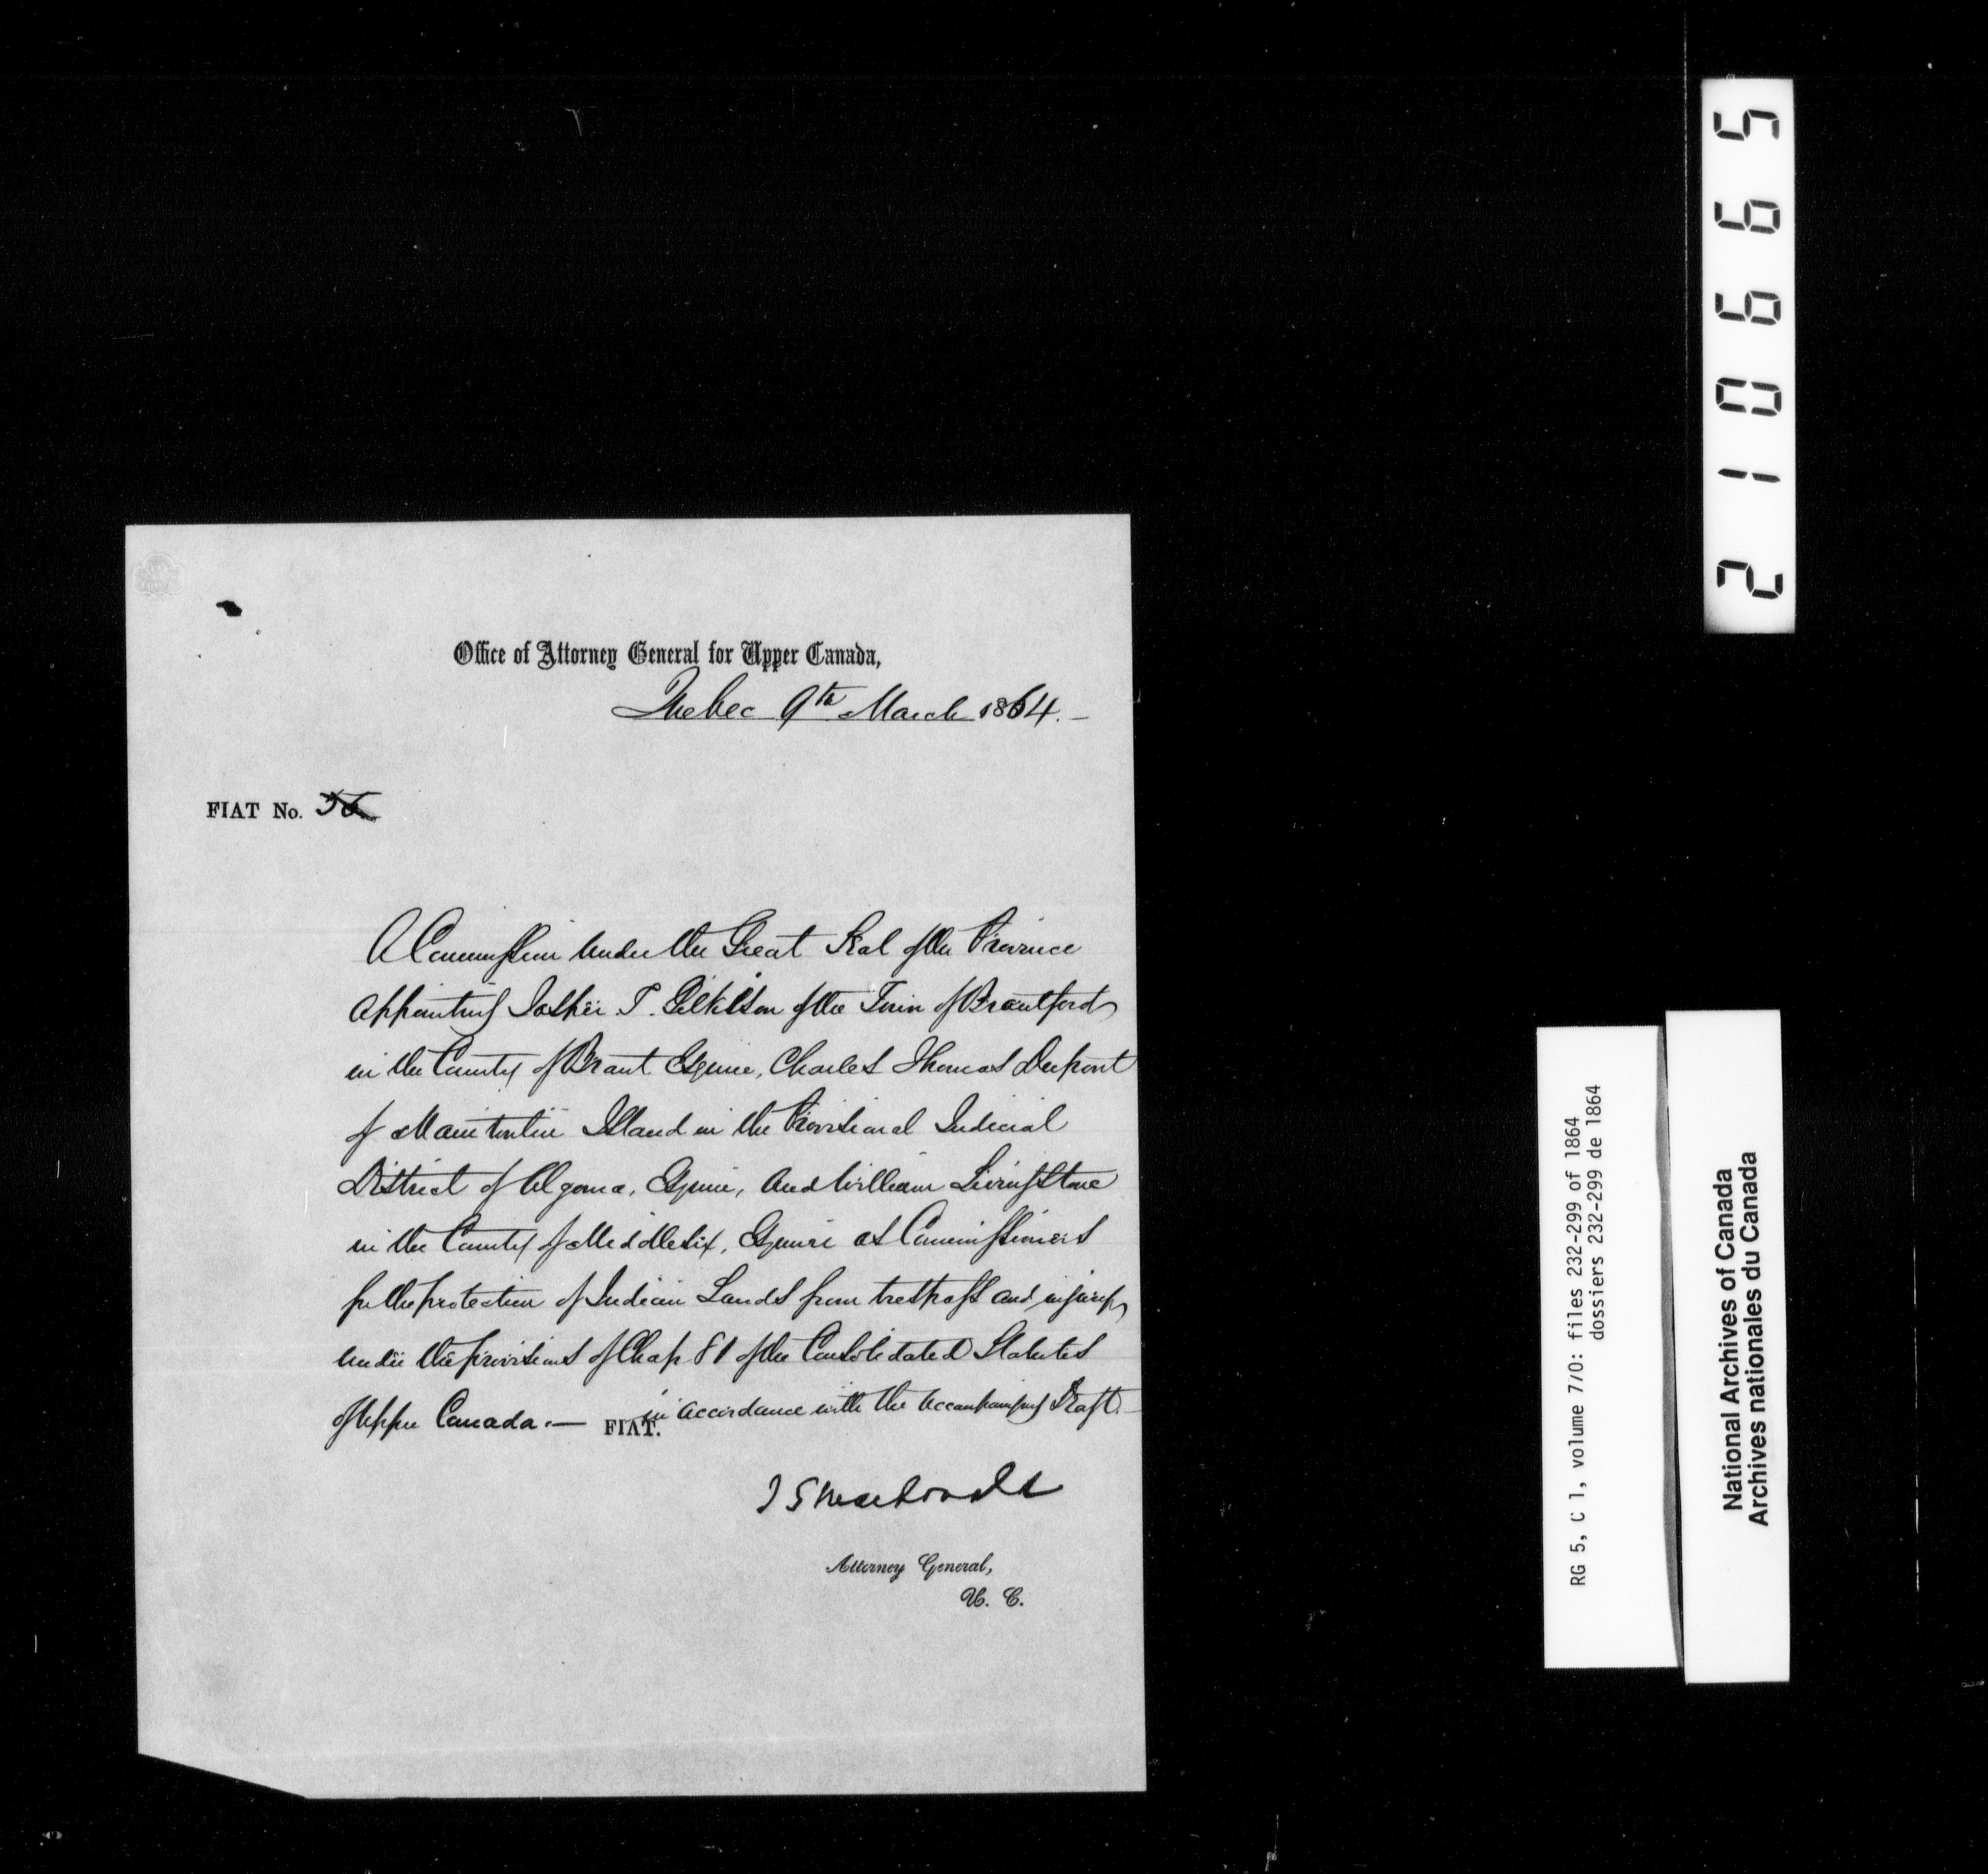 Office of Attorney General for Upper Canada,
Quebec 9th March 1864.
FIAT No.
A Commission under the Great Seal of the Province
appointing Jasper T. Gilkison of the Town of Brantford
in the County of Brant Esquire, Charles Thomas Dupont
of Manitoulin Island in the Provisional Judicial
District of Algoma, Esquire, and William Livingstone
in the County of Middlesex, Esquire as Commissioners
for the protection of Indian Lands from trespass and injury
under the provisions of Chap 81 of the Consolidated Statutes
of Upper Canada.— in accordance with the accompanying Draft.—
FIAT.
J S Macdonald
Attorney General,
U. C.
210665
RG 5, C 1, volume 7/0: files 232-299 of 1864
dossiers 232-299 de 1864
National Archives of Canada
Archives nationales du Canada